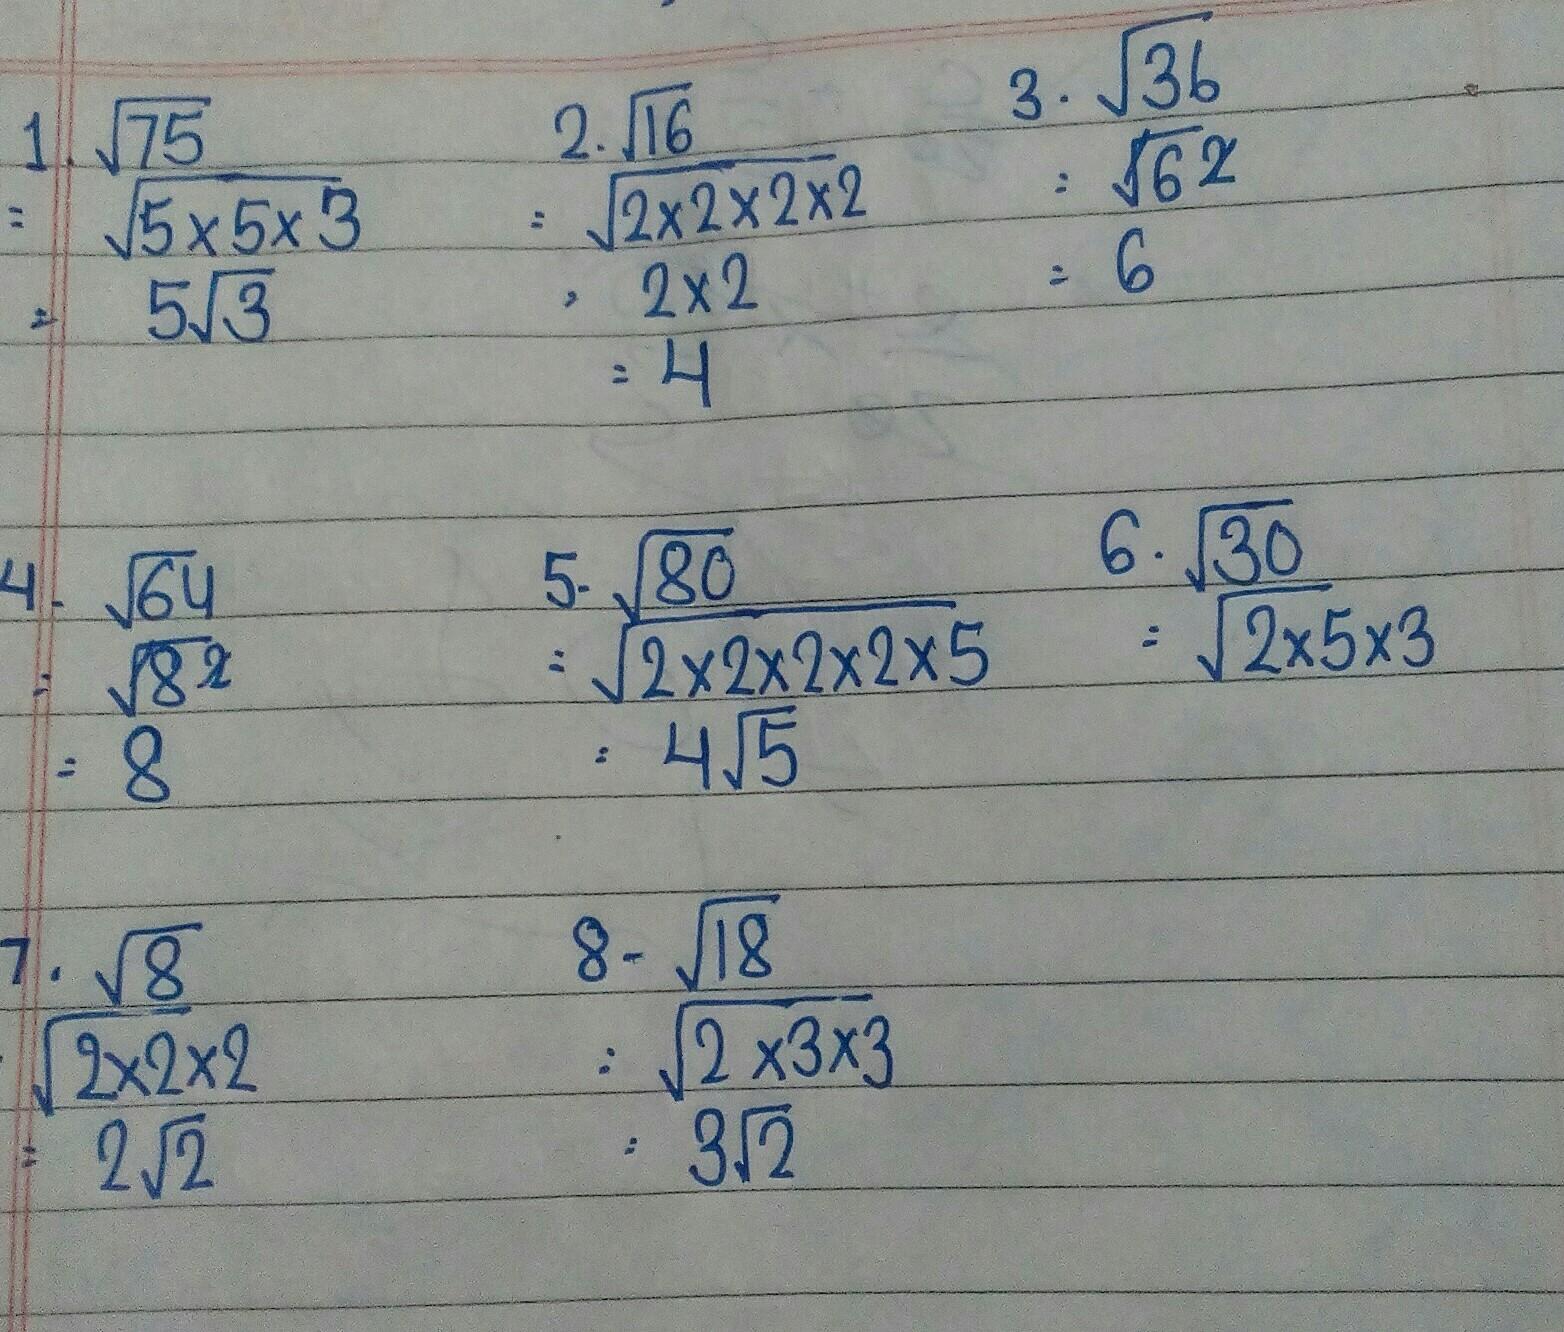 1. √75
= √5×5×3
= 5√3
2. √16
= √2×2×2×2
= 2×2
= 4
3. √36
= √6²
= 6
4. √64
= √8²
= 8
5. √80
= √2×2×2×2×5
= 4√5
6. √30
= √2×5×3
7. √8
√2×2×2
= 2√2
8- √18
= √2×3×3
= 3√2